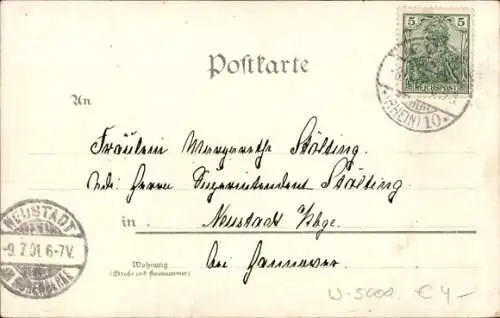 5 5
REICHSPOST
(RHEIN) 10.
Postkarte
An
Fräulein Margarethe Stölting
bei Herrn Superintendent Stölting
in Neustadt a/Rbge.
bei Hannover.
Wohnung
(Straße und Hausnummer)
NEUSTADT
-9.7.01.6-7V.
AM RÜBENBERGE
W-5000. € 4,-